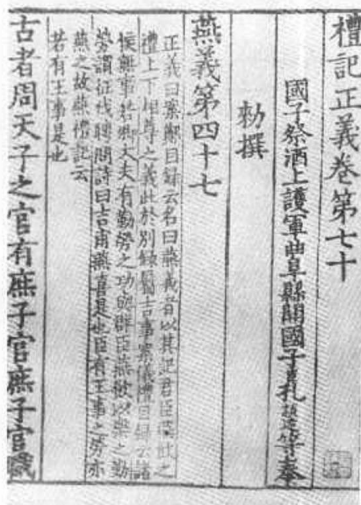 禮記正義卷第七十
國子祭酒上護軍曲阜縣開國子臣孔穎達等奉
勑撰
燕義第四十七
正義曰案鄭目錄云名曰燕義者以其記君臣燕飲之
禮上下相尊之義此於別錄屬吉事案儀禮目錄云諸
侯無事若卿大夫有勤勞之功與群臣燕飲以樂之勤
勞謂征伐聘問詩曰吉甫燕喜是也臣有王事之勞亦
燕之故燕禮記云
若有王事是也
古者周天子之官有庶子官庶子官職